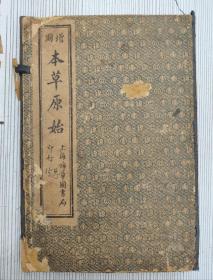 增圖
本草原始
上海錦章圖書局
印行